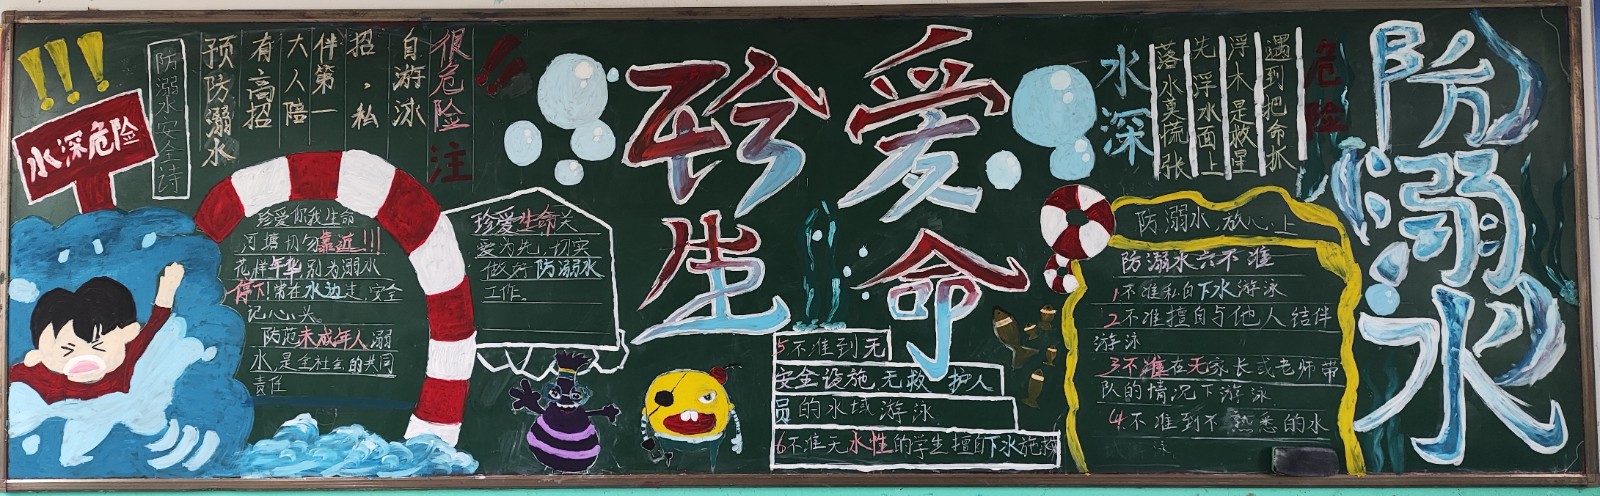 !!!
水深危险
防溺水安全诗
预防溺水
有高招
大人陪
伴第一
招，私
自游泳
很危险
注
!!
珍爱你我生命
河塘切勿靠近!!!
花样年华别为溺水
停下!常在水边走,安全
记心头。
防范未成年人溺
水,是全社会的共同
责任
珍爱生命关
爱为先,切实
做好防溺水
工作。
珍爱
生命
水深
落水莫慌张
先浮水面上
浮木是救星
遇到把命抓
危险
防溺水
防溺水,放心上
防溺水六不准
1不准私自下水游泳
2不准擅自与他人结伴
游泳
3不准在无家长或老师带
队的情况下游泳
4不准到不熟悉的水
5不准到无
安全设施,无救护人
员的水域游泳
6不准无水性的学生擅自下水施救